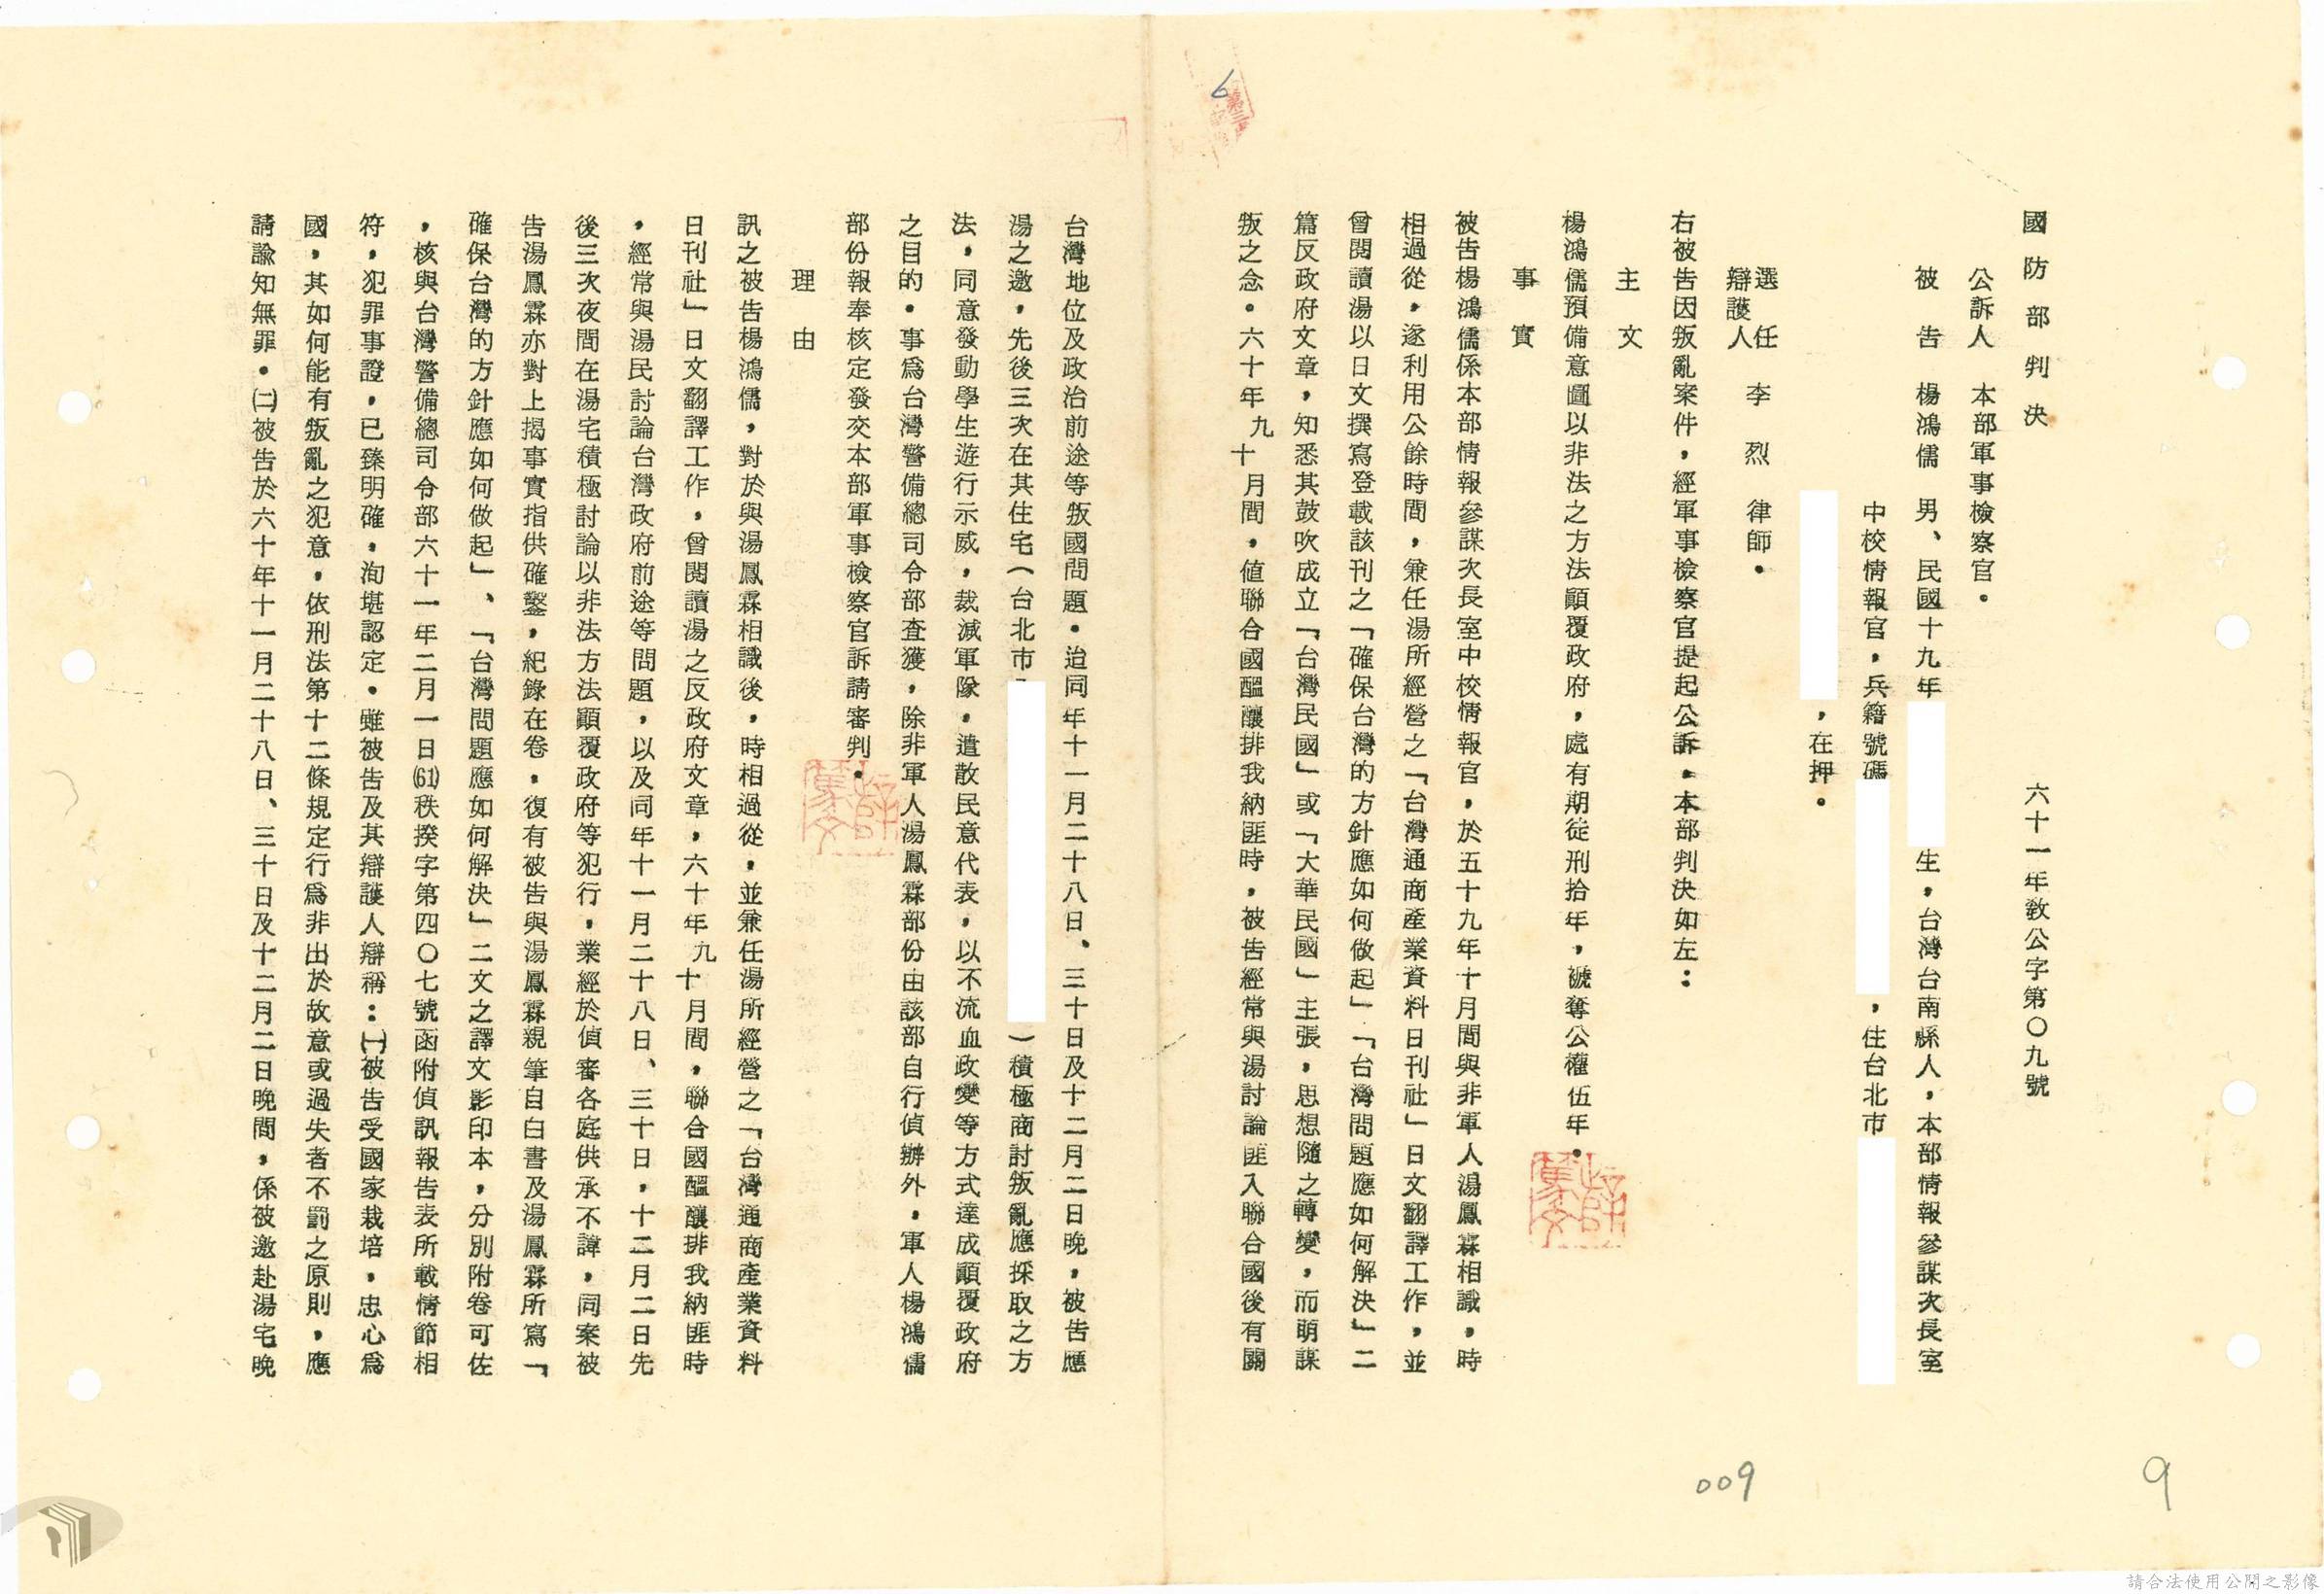 國防部判決
六十一年教公字第〇九號
公訴人 本部軍事檢察官。
被告 楊鴻儒 男、民國十九年 生，台灣台南縣人，本部情報參謀次長室
中校情報官，兵籍號碼 ，住台北市
，在押。
選任
辯護人 李烈律師。
右被告因叛亂案件，經軍事檢察官提起公訴。本部判決如左：
主文
楊鴻儒預備意圖以非法之方法顚覆政府，處有期徒刑拾年，褫奪公權伍年。
事實
被告楊鴻儒係本部情報參謀次長室中校情報官，於五十九年十月間與非軍人湯鳳霖相識，時
相過從，遂利用公餘時間，兼任湯所經營之「台灣通商產業資料日刊社」日文翻譯工作，並
曾閱讀湯以日文撰寫登載該刊之「確保台灣的方針應如何做起」「台灣問題應如何解決」二
篇反政府文章，知悉其鼓吹成立「台灣民國」或「大華民國」主張，思想隨之轉變，而萌謀
叛之念。六十年九十月間，值聯合國醞釀排我納匪時，被告經常與湯討論匪入聯合國後有關
台灣地位及政治前途等叛國問題。迨同年十一月二十八日、三十日及十二月二日晚，被告應
湯之邀，先後三次在其住宅（台北市 ）積極商討叛亂應採取之方
法，同意發動學生遊行示威，裁減軍隊，遣散民意代表，以不流血政變等方式達成顚覆政府
之目的。事爲台灣警備總司令部查獲，除非軍人湯鳳霖部份由該部自行偵辦外，軍人楊鴻儒
部份報奉核定發交本部軍事檢察官訴請審判。
理由
訊之被告楊鴻儒，對於與湯鳳霖相識後，時相過從，並兼任湯所經營之「台灣通商產業資料
日刊社」日文翻譯工作，曾閱讀湯之反政府文章，六十年九十月間，聯合國醞釀排我納匪時
，經常與湯民討論台灣政府前途等問題，以及同年十一月二十八日、三十日，十二月二日先
後三次夜間在湯宅積極討論以非法方法顚覆政府等犯行，業經於偵審各庭供承不諱，同案被
告湯鳳霖亦對上揭事實指供確鑿，紀錄在卷，復有被告與湯鳳霖親筆自白書及湯鳳霖所寫「
確保台灣的方針應如何做起」、「台灣問題應如何解決」二文之譯文影印本，分別附卷可佐
，核與台灣警備總司令部六十一年二月一日(61)秩揆字第四〇七號函附偵訊報告表所載情節相
符，犯罪事證，已臻明確，洵堪認定。雖被告及其辯護人辯稱：㈠被告受國家栽培，忠心爲
國，其如何能有叛亂之犯意，依刑法第十二條規定行爲非出於故意或過失者不罰之原則，應
請諭知無罪。㈡被告於六十年十一月二十八日、三十日及十二月二日晚間，係被邀赴湯宅晚
6
009
9
請合法使用公開之影像